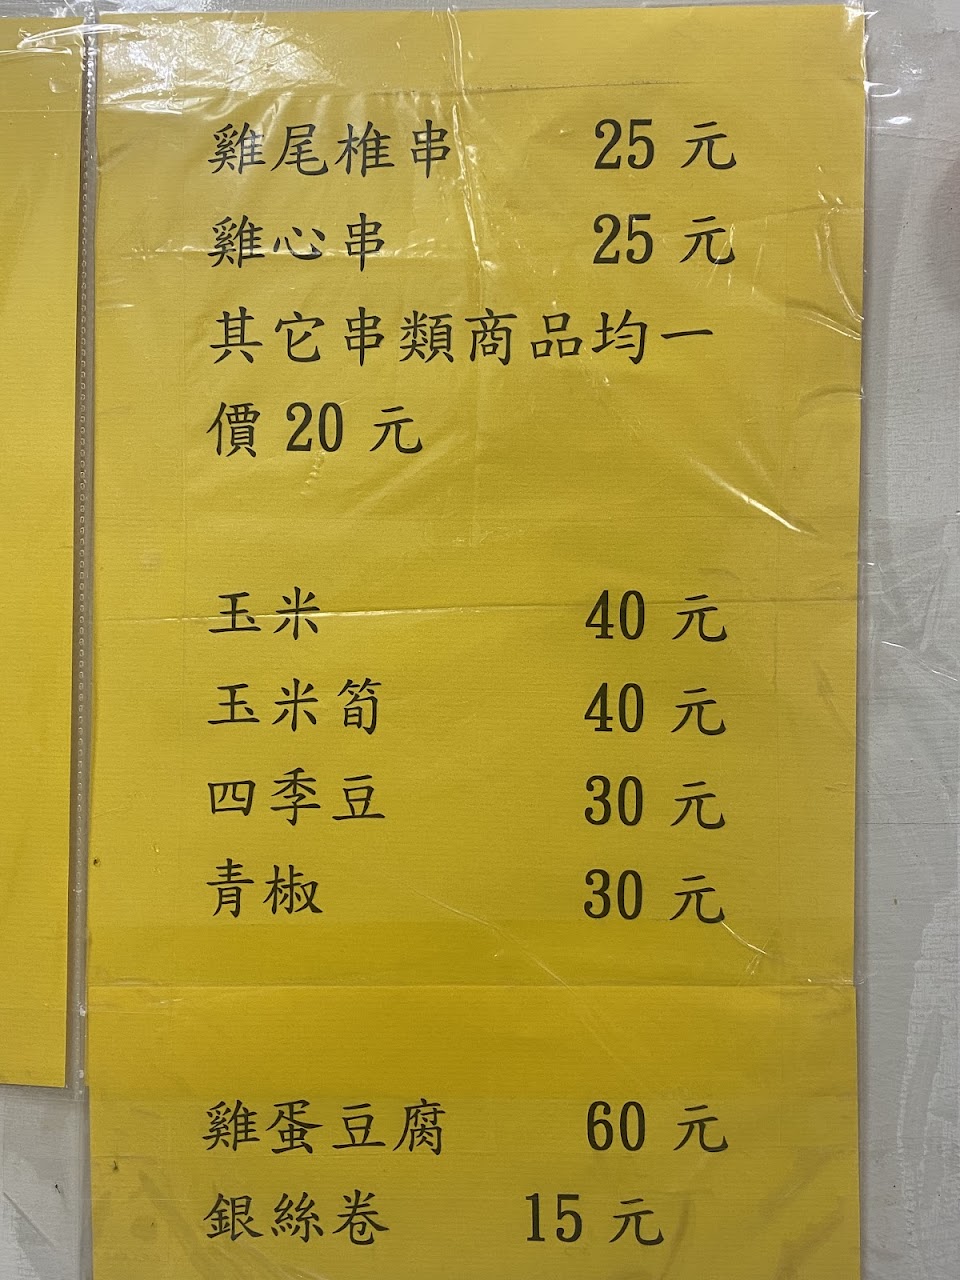 雞尾椎串 25 元
雞心串 25 元
其它串類商品均一
價 20 元
玉米 40 元
玉米筍 40 元
四季豆 30 元
青椒 30 元
雞蛋豆腐 60 元
銀絲卷 15 元